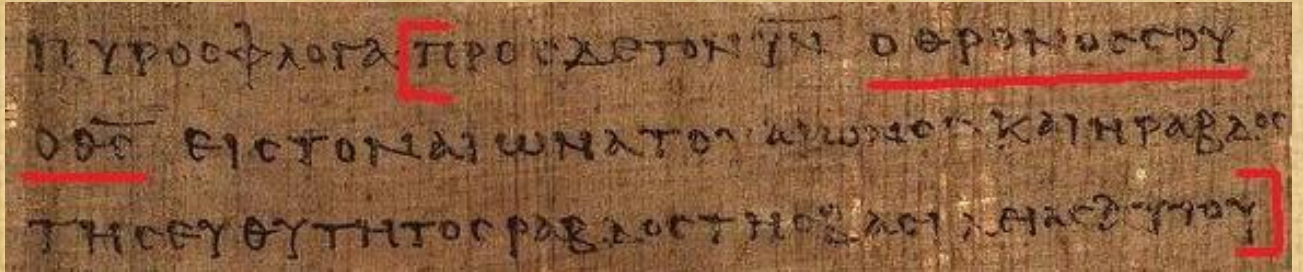 ΠΥΡΟΣΦΛΟΓΑΠΡΟΣΔΕΤΟΝΥ̅Ν̅ ΟΘΡΟΝΟΣΣΟΥ
ΟΘ̅Σ̅ ΕΙΣΤΟΝΑΙΩΝΑΤΟΥ ΑΙΩΝΟΣ ΚΑΙΗΡΑΒΔΟΣ
ΤΗΣΕΥΘΥΤΗΤΟΣΡΑΒΔΟΣΤΗΣΒΑΣΙΛΕΙΑΣΑΥΤΟΥ